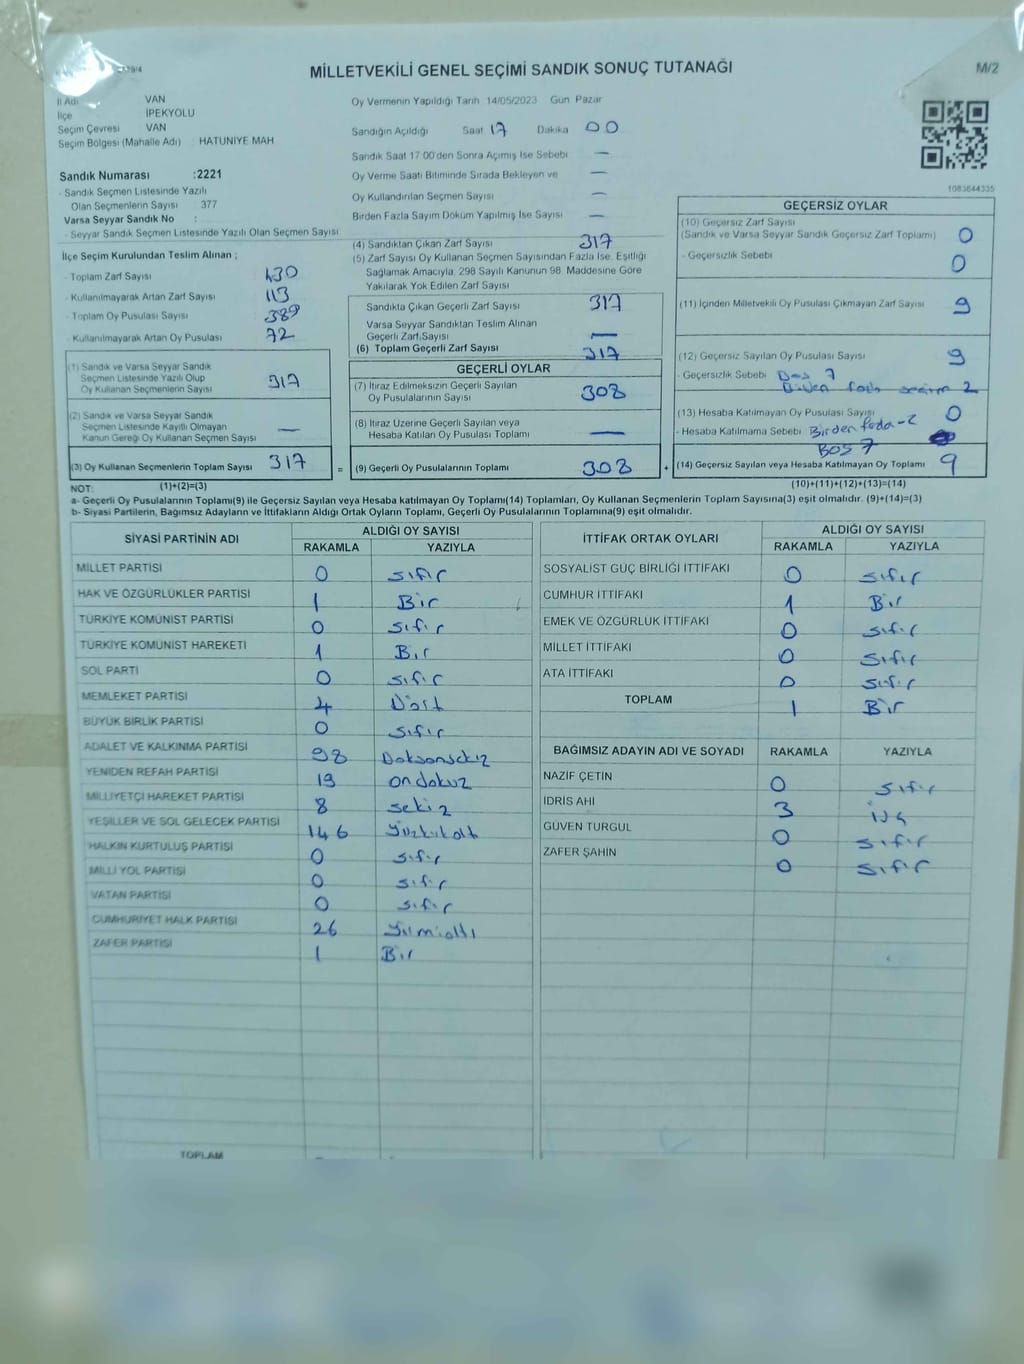 MİLLETVEKİLİ GENEL SEÇİMİ SANDIK SONUÇ TUTANAĞI
M/2
İl Adı VAN
İlçe İPEKYOLU
Seçim Çevresi VAN
Seçim Bölgesi (Mahalle Adı) : HATUNİYE MAH
Sandık Numarası :2221
- Sandık Seçmen Listesinde Yazılı
Olan Seçmenlerin Sayısı 377
Varsa Seyyar Sandık No :
- Seyyar Sandık Seçmen Listesinde Yazılı Olan Seçmen Sayısı
İlçe Seçim Kurulundan Teslim Alınan ;
- Toplam Zarf Sayısı 430
- Kullanılmayarak Artan Zarf Sayısı 113
- Toplam Oy Pusulası Sayısı 389
- Kullanılmayarak Artan Oy Pusulası 72
(1) Sandık ve Varsa Seyyar Sandık
Seçmen Listesinde Yazılı Olup
Oy Kullanan Seçmenlerin Sayısı 317
(2) Sandık ve Varsa Seyyar Sandık
Seçmen Listesinde Kayıtlı Olmayan
Kanun Gereği Oy Kullanan Seçmen Sayısı —
(3) Oy Kullanan Seçmenlerin Toplam Sayısı 317
(1)+(2)=(3)
Oy Vermenin Yapıldığı Tarih 14/05/2023 Gün Pazar
Sandığın Açıldığı Saat 17 Dakika 00
Sandık Saat 17:00'den Sonra Açılmış İse Sebebi —
Oy Verme Saati Bitiminde Sırada Bekleyen ve —
Oy Kullandırılan Seçmen Sayısı —
Birden Fazla Sayım Döküm Yapılmış İse Sayısı —
(4) Sandıktan Çıkan Zarf Sayısı 317
(5) Zarf Sayısı Oy Kullanan Seçmen Sayısından Fazla İse, Eşitliği
Sağlamak Amacıyla, 298 Sayılı Kanunun 98. Maddesine Göre
Yakılarak Yok Edilen Zarf Sayısı
Sandıkta Çıkan Geçerli Zarf Sayısı 317
Varsa Seyyar Sandıktan Teslim Alınan
Geçerli Zarf Sayısı —
(6) Toplam Geçerli Zarf Sayısı 317
GEÇERLİ OYLAR
(7) İtiraz Edilmeksizin Geçerli Sayılan
Oy Pusulalarının Sayısı 308
(8) İtiraz Üzerine Geçerli Sayılan veya
Hesaba Katılan Oy Pusulası Toplamı —
= (9) Geçerli Oy Pusulalarının Toplamı 308 +
1083644335
GEÇERSİZ OYLAR
(10) Geçersiz Zarf Sayısı
(Sandık ve Varsa Seyyar Sandık Geçersiz Zarf Toplamı) 0
- Geçersizlik Sebebi 0
(11) İçinden Milletvekili Oy Pusulası Çıkmayan Zarf Sayısı 9
(12) Geçersiz Sayılan Oy Pusulası Sayısı 9
- Geçersizlik Sebebi Boş 7
2
(13) Hesaba Katılmayan Oy Pusulası Sayısı 0
- Hesaba Katılmama Sebebi Birden fazla-2
BOŞ 7
(14) Geçersiz Sayılan veya Hesaba Katılmayan Oy Toplamı 9
(10)+(11)+(12)+(13)=(14)
NOT:
a- Geçerli Oy Pusulalarının Toplamı(9) ile Geçersiz Sayılan veya Hesaba katılmayan Oy Toplamı(14) Toplamları, Oy Kullanan Seçmenlerin Toplam Sayısına(3) eşit olmalıdır. (9)+(14)=(3)
b- Siyasi Partilerin, Bağımsız Adayların ve İttifakların Aldığı Ortak Oyların Toplamı, Geçerli Oy Pusulalarının Toplamına(9) eşit olmalıdır.
SİYASİ PARTİNİN ADI ALDIĞI OY SAYISI
RAKAMLA YAZIYLA
MİLLET PARTİSİ 0 sıfır
HAK VE ÖZGÜRLÜKLER PARTİSİ 1 Bir
TÜRKİYE KOMÜNİST PARTİSİ 0 sıfır
TÜRKİYE KOMÜNİST HAREKETİ 1 Bir
SOL PARTİ 0 sıfır
MEMLEKET PARTİSİ 4 Dört
BÜYÜK BİRLİK PARTİSİ 0 sıfır
ADALET VE KALKINMA PARTİSİ 98 Doksansekiz
YENİDEN REFAH PARTİSİ 19 ondokuz
MİLLİYETÇİ HAREKET PARTİSİ 8 sekiz
YEŞİLLER VE SOL GELECEK PARTİSİ 146
HALKIN KURTULUŞ PARTİSİ 0 sıfır
MİLLİ YOL PARTİSİ 0 sıfır
VATAN PARTİSİ 0 sıfır
CUMHURİYET HALK PARTİSİ 26 yirmialtı
ZAFER PARTİSİ 1 Bir
TOPLAM
İTTİFAK ORTAK OYLARI ALDIĞI OY SAYISI
RAKAMLA YAZIYLA
SOSYALİST GÜÇ BİRLİĞİ İTTİFAKI 0 sıfır
CUMHUR İTTİFAKI 1 Bir
EMEK VE ÖZGÜRLÜK İTTİFAKI 0 sıfır
MİLLET İTTİFAKI 0 sıfır
ATA İTTİFAKI 0 sıfır
TOPLAM 1 Bir
BAĞIMSIZ ADAYIN ADI VE SOYADI RAKAMLA YAZIYLA
NAZİF ÇETİN 0 sıfır
İDRİS AHİ 3 üç
GÜVEN TURGUL 0 sıfır
ZAFER ŞAHİN 0 sıfır